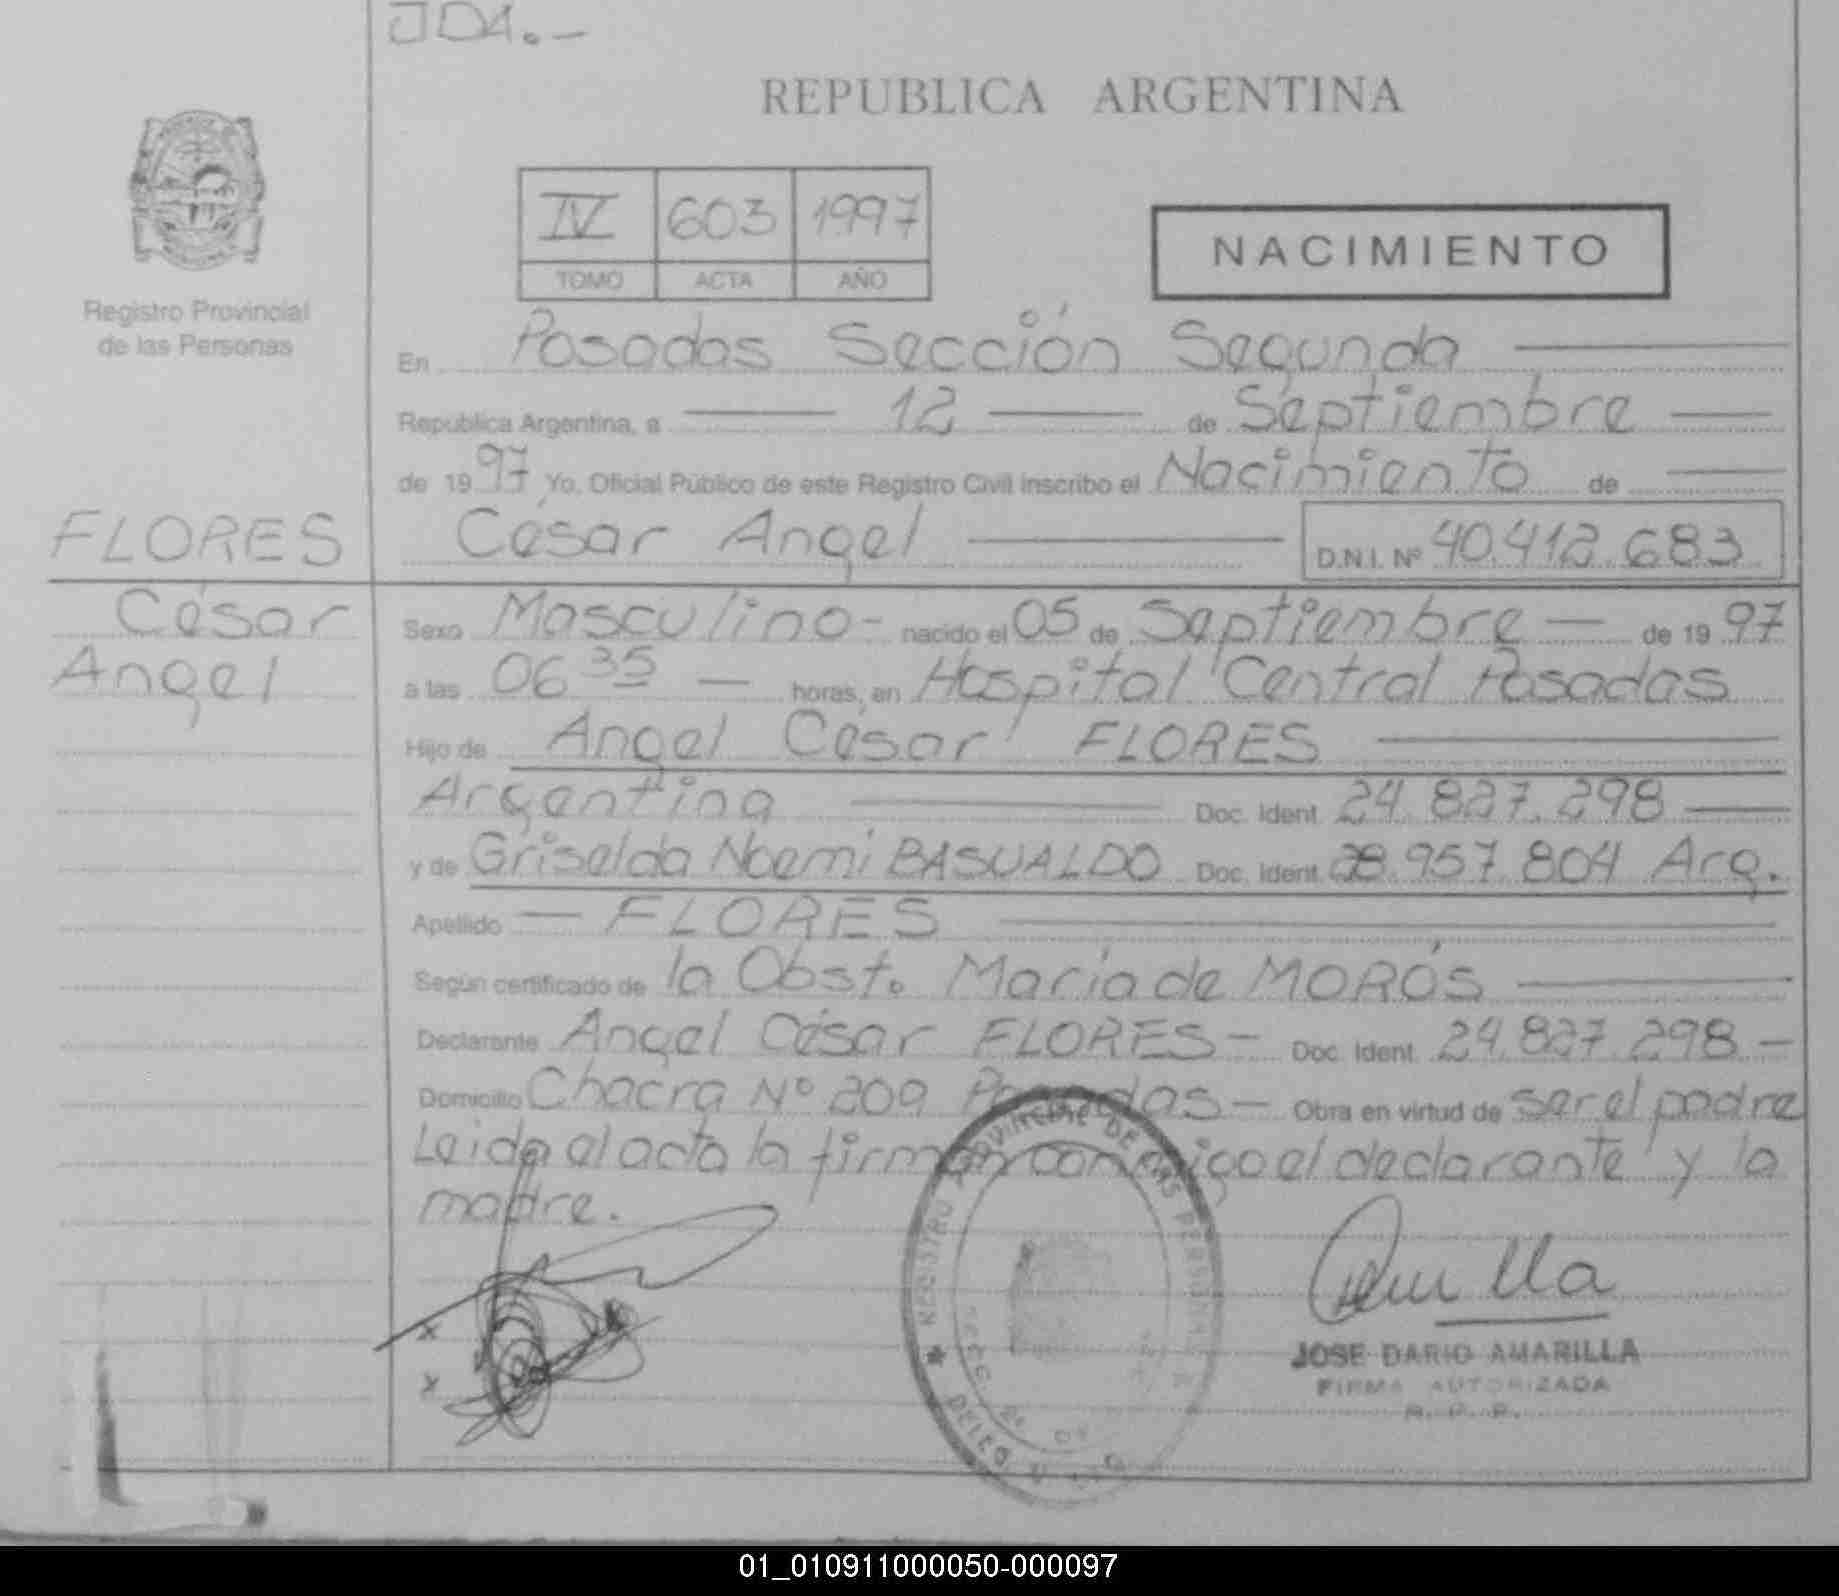 JDA.-
REPUBLICA ARGENTINA
IV 603 1997
TOMO ACTA AÑO
NACIMIENTO
Registro Provincial
de las Personas
En Posadas Sección Segunda
Republica Argentina, a 12 de Septiembre
de 1997 Yo, Oficial Público de este Registro Civil inscribo el Nacimiento de
FLORES César Angel D.N.I. Nº 40.412.683
César
Angel
Sexo Masculino- nacido el 05 de Septiembre — de 19 97
a las 06 35 — horas, en Hospital Central Posadas
Hijo de Angel César FLORES
Argentina Doc. Ident. 24.827.298
y de Griselda Noemi BASUALDO Doc. Ident. 28.957.804 Arg.
Apellido — FLORES
Según certificado de la Obst. María de MORÓS
Declarante Angel César FLORES- Doc. Ident. 24.827.298 -
Domicilio Chacra Nº 209 Posadas- Obra en virtud de ser el padre
Leida el acta la firman conmigo el declarante y la
madre.
REGISTRO PROVINCIAL DE LAS PERSONAS
x
x
JOSE DARIO AMARILLA
FIRMA AUTORIZADA
R. P. P.
01_010911000050-000097